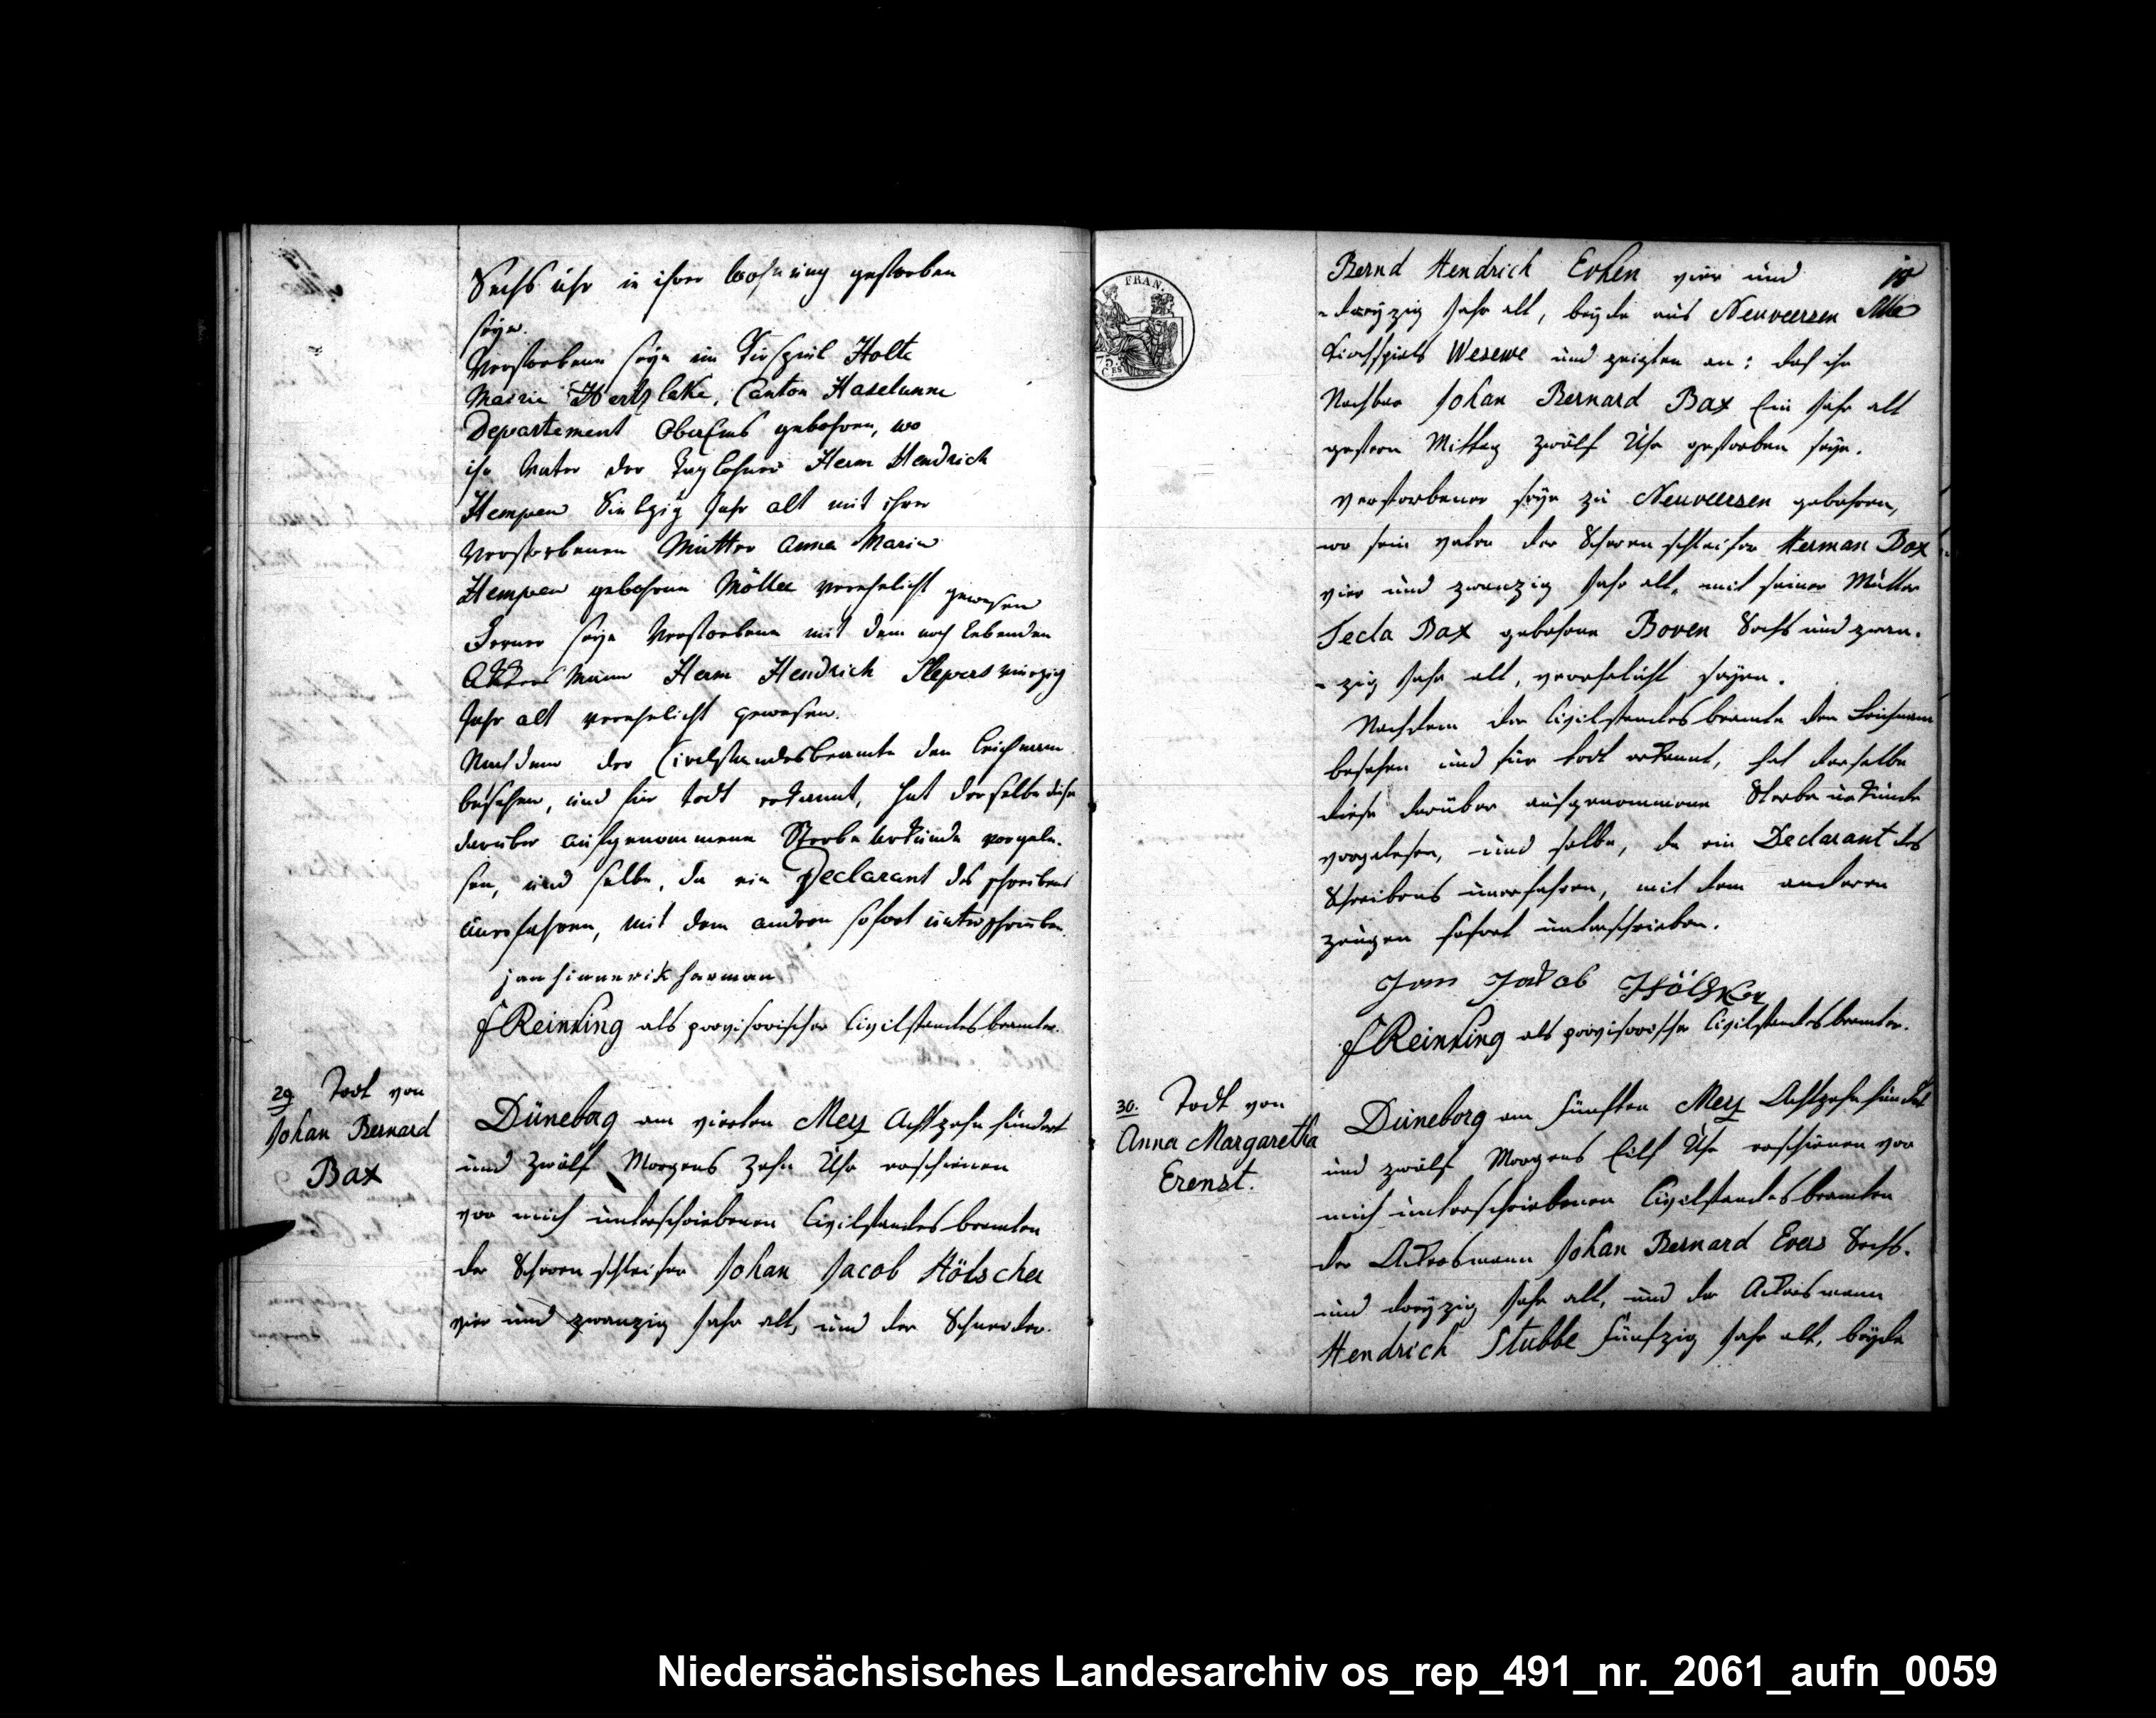 Sechs uhr in ihrer wohnung gestorben
seye.
Verstorbene seye im Kirspiel Holte
Mairie Hertzlake, Canton Haselunne
Departement OberEms gebohren, wo
ihr Vater der Taglohner Herm Hendrich
Hempen Siebzig Jahr alt mit ihrer
Verstorbenen Mutter Anna Maria
Hempen gebohrne Möller verehelicht gewesen
Ferner seye Verstorbene mit dem noch lebenden
Ackersmann Herm Hendrich Slepers vierzig
Jahr alt verehelicht gewesen.
Nachdem der Civilstandesbeamte den leichnam
besehen, und für todt erkannt, hat derselbe diese
darüber aufgenommene Sterbe Urkunde vorgele-
sen, und selbe, da ein Declarant des schreibens
unerfahren, mit dem andren sofort unterschrieben.
jan hinnerik harman
F Reinking als provisorischer Civilstandesbeamter.
29 Todt von
Johan Bernard
Bax
Düneborg am vierten Merz Achtzehnhundert
und zwölf Morgens zehn Uhr erschienen
vor mich unterschriebenen Civilstandesbeamten
der Scherenschleifer Johan Jacob Hölscher
vier und zwanzig Jahr alt, und der Schneider
FRAN.
75
CES
Bernd Hendrich Erhen vier und
-dreyzig Jahr alt, beyde aus Neuveersen
Kirchspiels Wesewe und zeigten an: daß ihr
Nachbar Johan Bernard Bax Ein Jahr alt
gestern Mittag zwölf Uhr gestorben seye.
Verstorbener seye zu Neuveersen gebohren,
wo sein vater der Scherenschleifer Herman Bax
vier und zwanzig Jahr alt, mit seiner Mutter
Tecla Bax gebohrne Boven Sechs und zwan-
-zig Jahr alt, verehelicht seyen.
Nachdem der Civilstandesbeamte den Leichnam
besehen und für todt erkannt, hat derselbe
diese darüber aufgenommene Sterbeurkunde
vorgelesen, und selbe, da ein Declarant des
Schreibens unerfahren, mit dem anderen
zeugen sofort unterschrieben.
Jan Jakob Hölsker
F Reinking als provisorischer Civilstandesbeamter.
30. Todt von
Anna Margaretha
Erenst.
Düneborg am fünften Merz Achtzehnhundert
und zwölf Morgens Eilf Uhr erschienen vor
mich unterschriebenen Civilstandesbeamten
der Ackersmann Johan Bernard Evers Sechs-
und dreyzig Jahr alt, und der Ackersmann
Hendrich Stubbe Fünfzig Jahr alt, beyde
Niedersächsisches Landesarchiv os_rep_491_nr._2061_aufn_0059